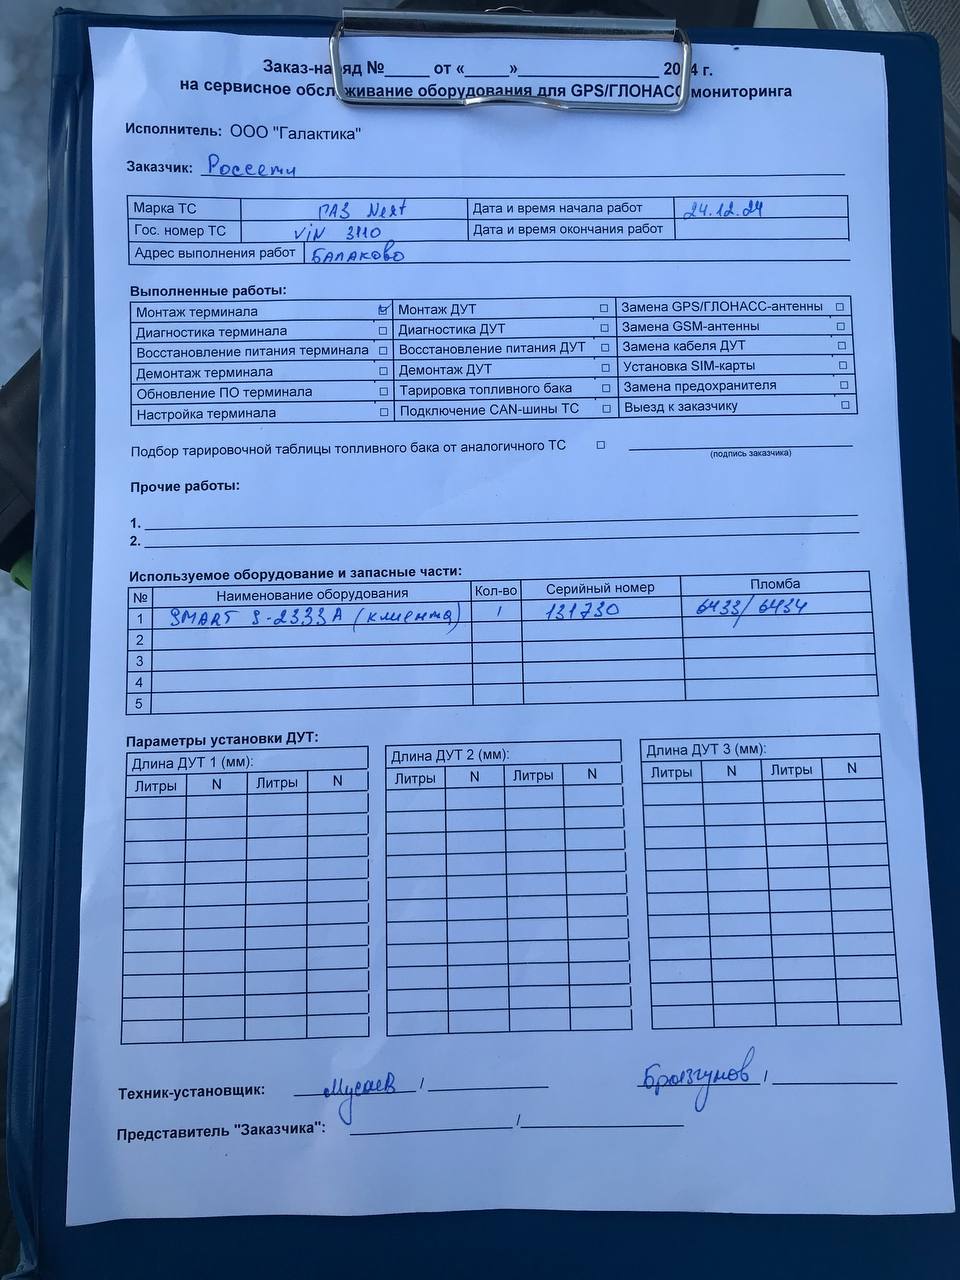 Заказ-наряд №_____ от «_____»________________ 20 4 г.
на сервисное обслуживание оборудования для GPS/ГЛОНАСС мониторинга
Исполнитель: ООО "Галактика"
Заказчик: Россети
Марка ТС ГАЗ Next Дата и время начала работ 24.12.24
Гос. номер ТС VIN 3110 Дата и время окончания работ
Адрес выполнения работ БАЛАКОВО
Выполненные работы:
Монтаж терминала ☑ Монтаж ДУТ □ Замена GPS/ГЛОНАСС-антенны □
Диагностика терминала □ Диагностика ДУТ □ Замена GSM-антенны □
Восстановление питания терминала □ Восстановление питания ДУТ □ Замена кабеля ДУТ □
Демонтаж терминала □ Демонтаж ДУТ □ Установка SIM-карты □
Обновление ПО терминала □ Тарировка топливного бака □ Замена предохранителя □
Настройка терминала □ Подключение CAN-шины ТС □ Выезд к заказчику □
Подбор тарировочной таблицы топливного бака от аналогичного ТС □
(подпись заказчика)
Прочие работы:
1.
2.
Используемое оборудование и запасные части:
№ Наименование оборудования Кол-во Серийный номер Пломба
1 SMART S-2333A (клиента) 1 131730 6433/6434
2
3
4
5
Параметры установки ДУТ:
Длина ДУТ 1 (мм): Длина ДУТ 2 (мм): Длина ДУТ 3 (мм):
Литры N Литры N Литры N Литры N Литры N Литры N
Техник-установщик: Мусаев / Брызгунов /
Представитель "Заказчика": /